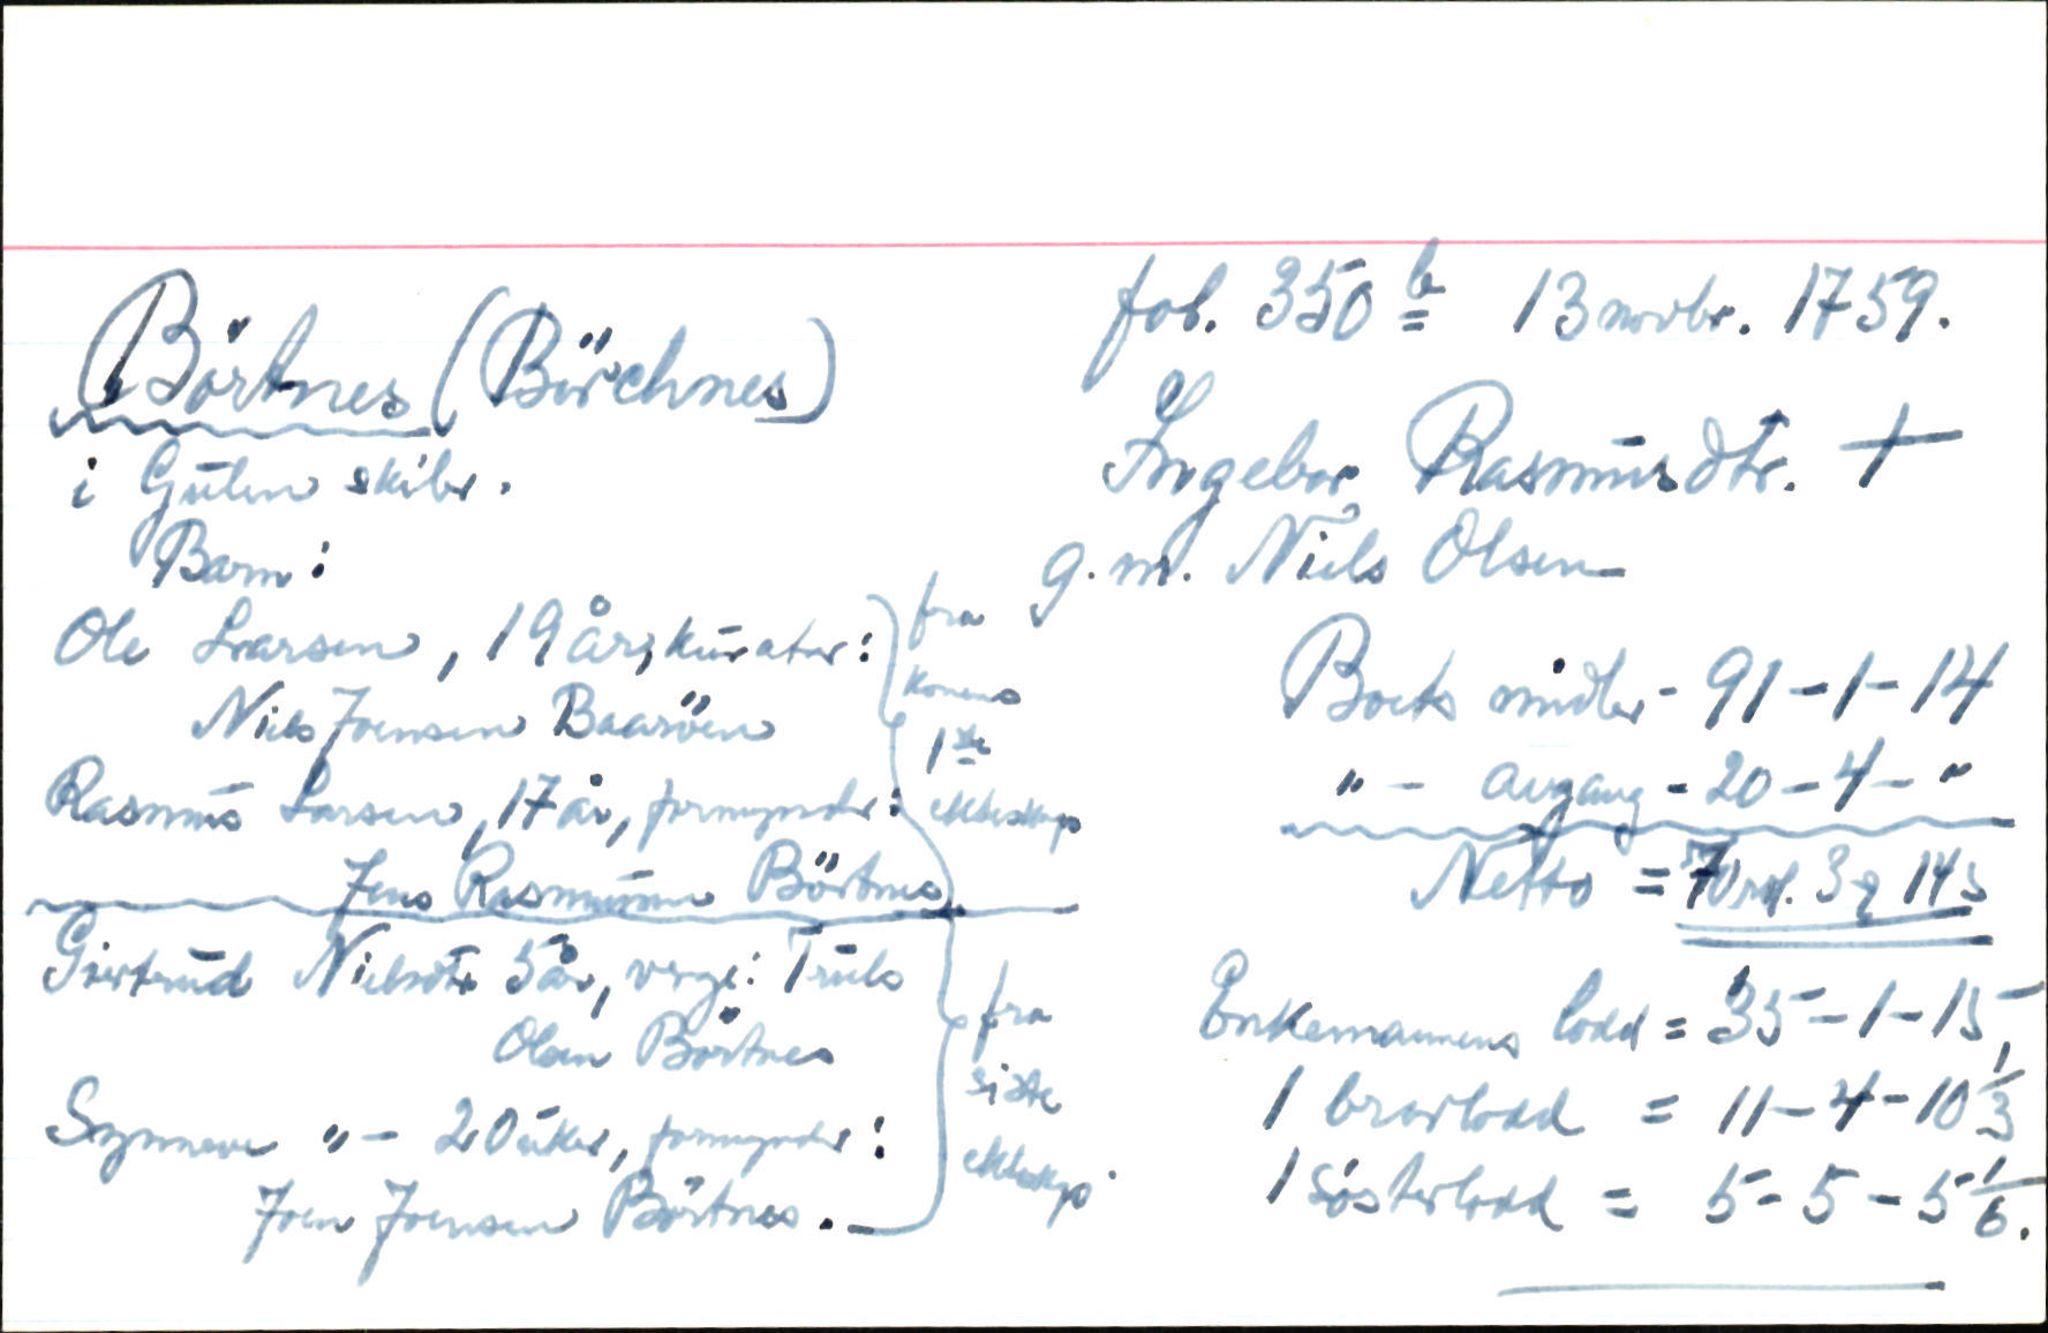 fol. 350 b 13 novbr. 1759.
Börtnes (Börchnes)
i Gulen skibr.
Ingebor Rasmusdtr. +
g. m. Niels Olsen
Barn:
Ole Larsen, 19 år, kurator:
Niels Joensen Baaröen
Rasmus Larsen, 17 år, formynder:
Jens Rasmussen Börtnes
fra
konens
1ste
ekteskap
Giertrud Nielsdtr 5 år, verge: Truls
Olsen Börtnes
Synneve "- 20 uker, formynder:
Joen Joensen Börtnes.
fra
siste
ekteskap.
Boets midler - 91-1-14
"- avgang - 20-4-"
Netto = 70 rd. 3 q 14 s
Enkemannens lodd = 35-1-15
1 brorlodd = 11-4-10 1/3
1 søsterlodd = 5-5-5 1/6.